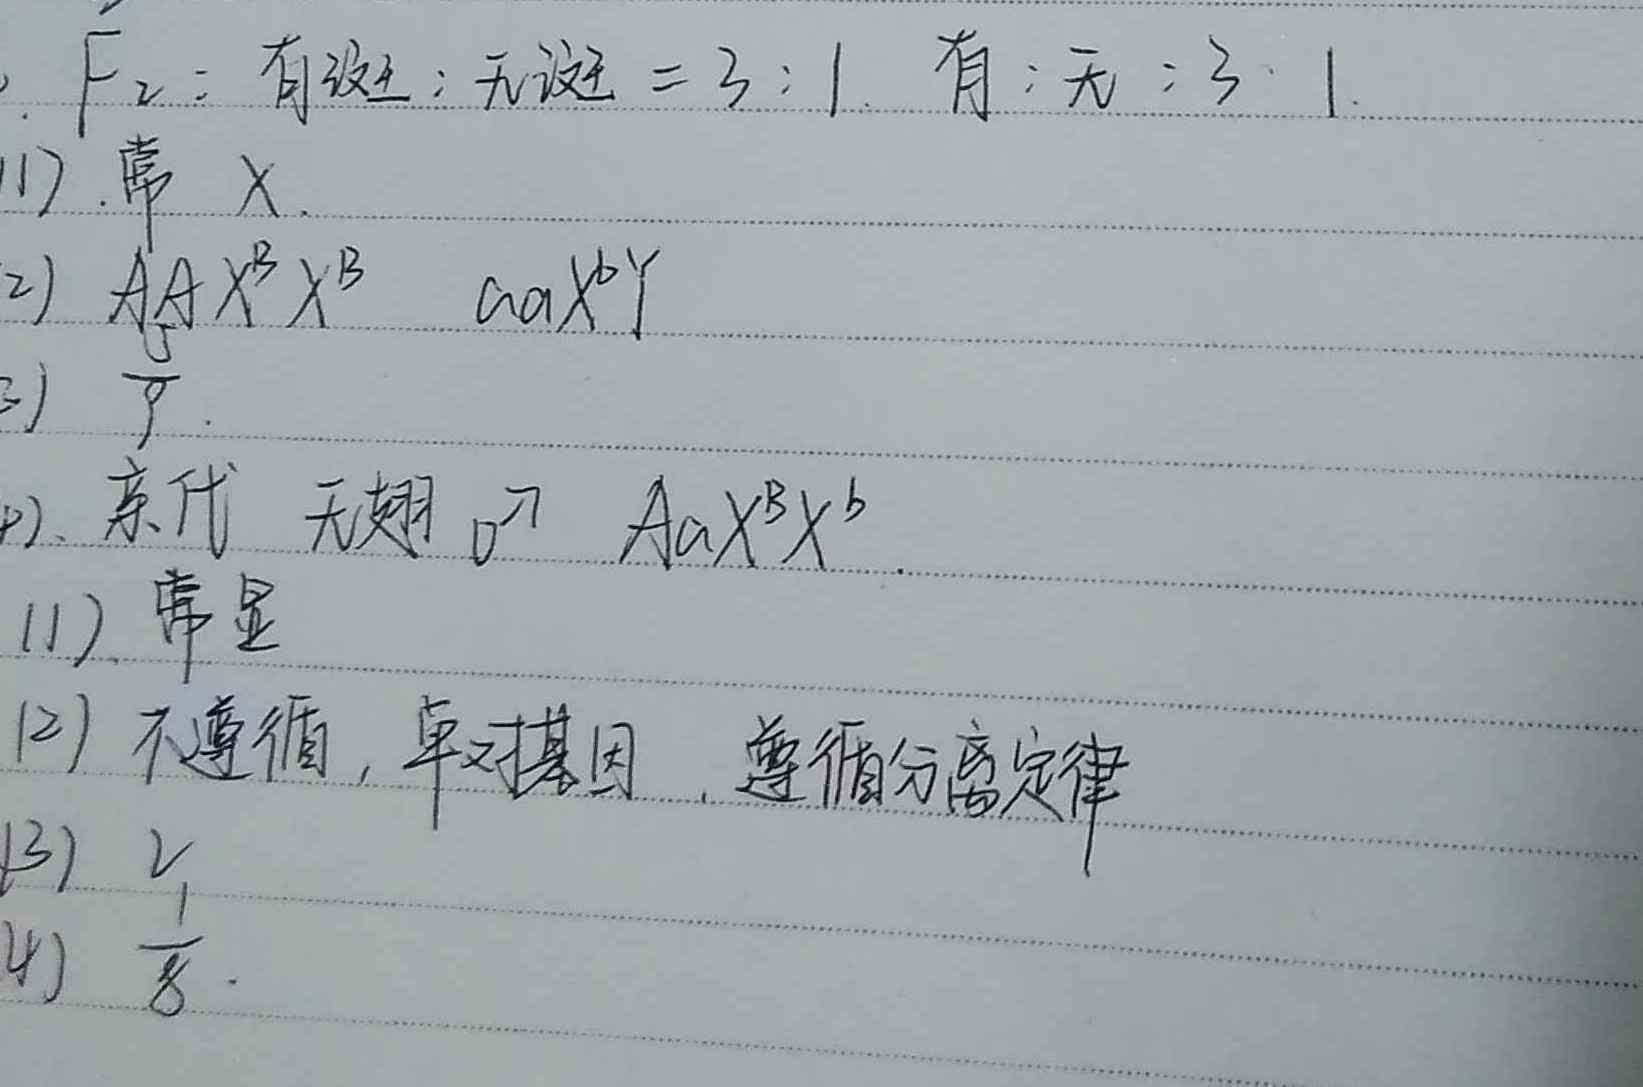 F₂: 有斑:无斑 = 3:1. 有:无:3:1.
(1).常 X.
(2) AAXᴮXᴮ aaXᵇY
3) 5/9.
4). 亲代 无翅 ♂ AaXᴮXᵇ.
(1).常显
(2) 不遵循,单对基因,遵循分离定律
(3) 2
(4) 1/8.